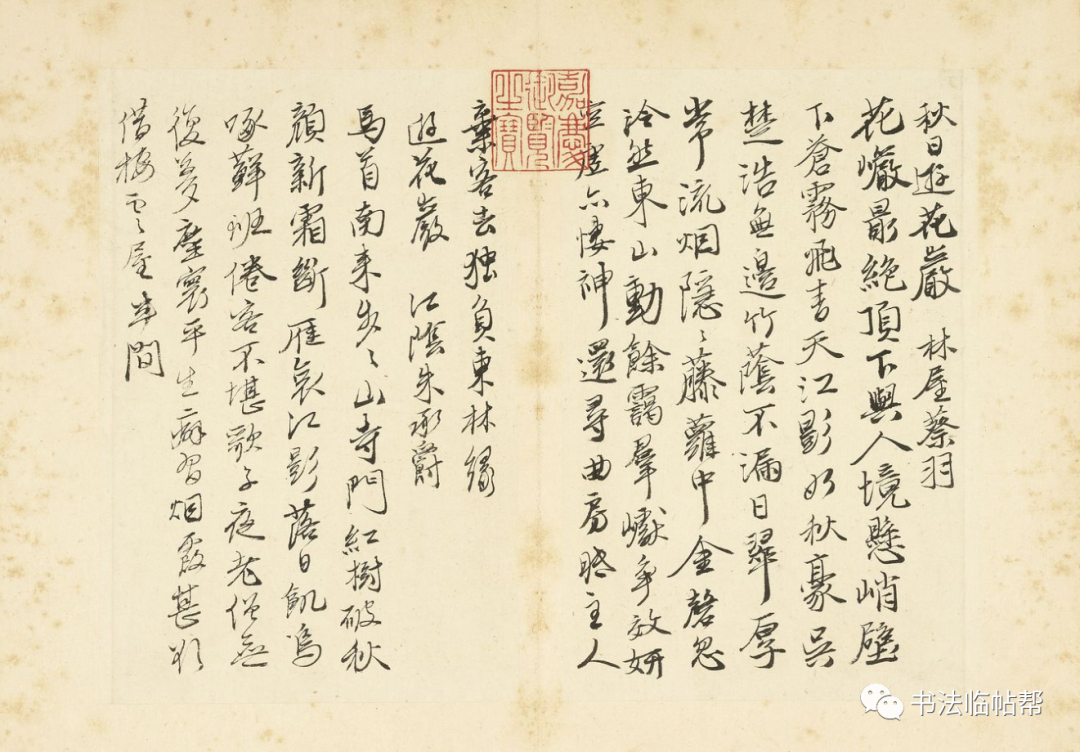 秋日遊花巖 林屋蔡羽
花巖最絕頂下與人境懸峭壁
下蒼霧飛青天江影如秋豪吳
楚浩無邊竹蔭不漏日翠厚
常流烟隱〻藤蘿中金磬忽
泠然東山動餘靄羣巘爭效妍
亦悽神還尋曲房眠主人
棄客去独負東林緣
遊花巖 江陰朱承爵
馬首南來步〻山寺門紅樹破秋
顔新霜斷雁哀江影落日飢烏
啄蘚班倦客不堪歌子夜老僧無
復夢塵寰平生癖習烟霞甚
借屋半間
嘉慶
御覽
之寶
书法临帖帮